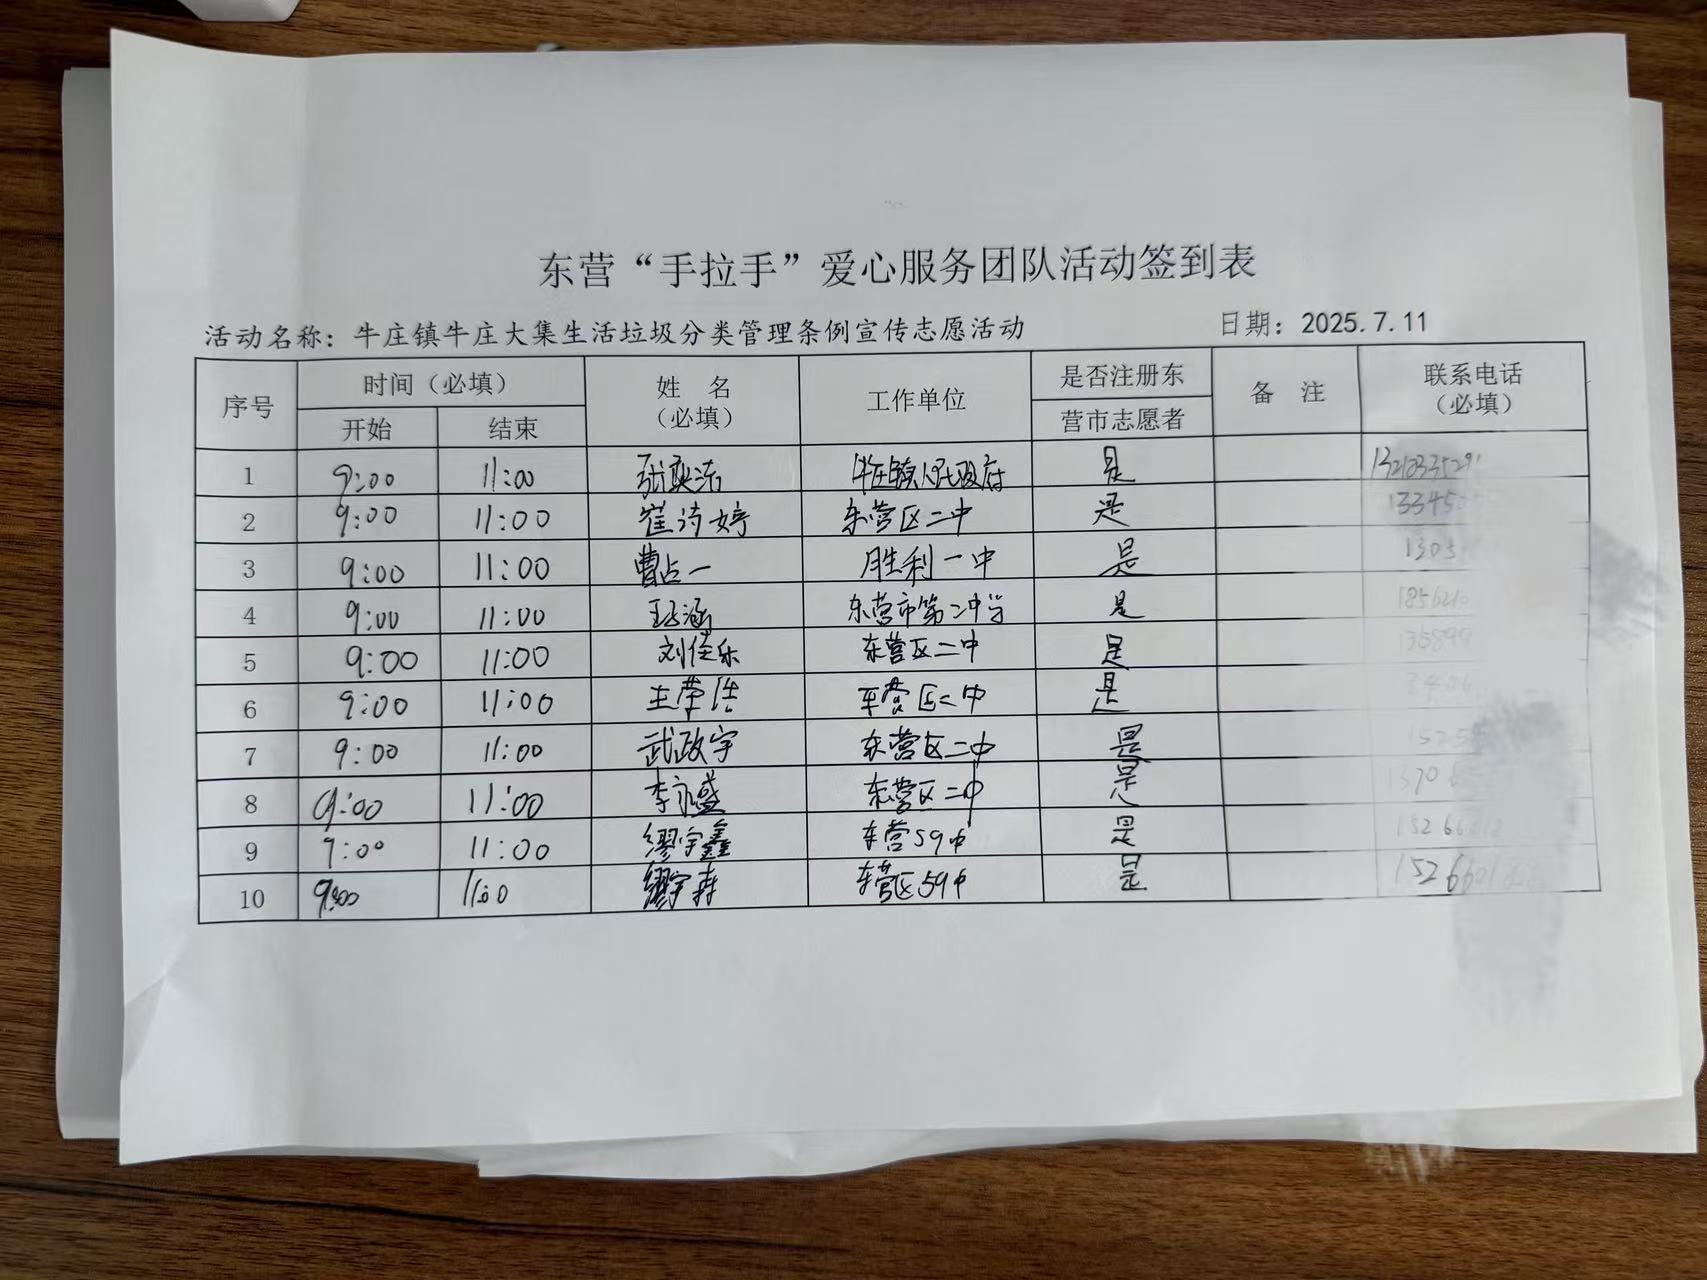 东营“手拉手”爱心服务团队活动签到表
活动名称：牛庄镇牛庄大集生活垃圾分类管理条例宣传志愿活动 日期：2025.7.11
序号 时间（必填） 姓 名（必填） 工作单位 是否注册东营市志愿者 备 注 联系电话（必填）
开始 结束
1 9:00 11:00 牛庄镇人民政府 是
2 9:00 11:00 崔诗婷 东营区二中 是
3 9:00 11:00 曹占一 胜利一中 是
4 9:00 11:00 东营市第二中学 是
5 9:00 11:00 刘佳乐 东营区二中 是
6 9:00 11:00 王荣浩 东营区二中 是
7 9:00 11:00 武政宇 东营区二中 是
8 9:00 11:00 李永盛 东营区二中 是
9 9:00 11:00 缪宇鑫 东营59中 是
10 9:00 11:00 缪宇森 东营区59中 是